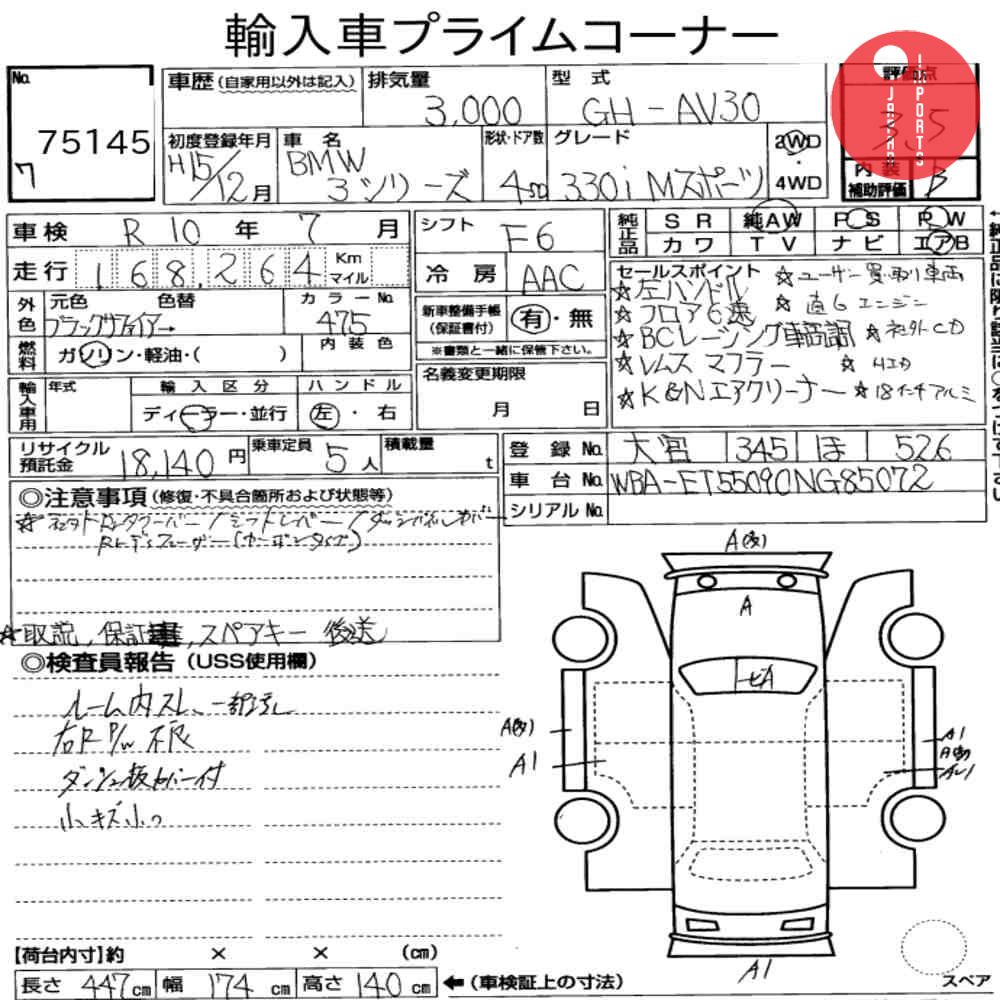 輸入車プライムコーナー
No.
75145
7
車歴(自家用以外は記入)
排気量
3,000
型 式
GH-AV30
評価点
3.5
JAPAN IMPORTS
初度登録年月
H15/12月
車 名
BMW
3シリーズ
形状・ドア数
4SD
グレード
330i Mスポーツ
2WD
・
4WD
内 装
補助評価
B
車検 R 10 年 7 月
走行 168,264 Km マイル
シフト F6
冷 房 AAC
純正品
SR 純AW PS PW
カワ TV ナビ エアB
外色
元色 色替
ブラックサファイア→
カラーNo.
475
燃料
ガソリン・軽油・( )
内 装 色
新車整備手帳
(保証書付)
有・無
※書類と一緒に保管下さい。
セールスポイント
☆左ハンドル
☆フロア6速
☆BCレーシング車高調
☆レムス マフラー
☆K&Nエアクリーナー
☆ユーザー買い取り車両
☆直6エンジン
☆社外CD
☆18インチアルミ
輸入車用
年式
輸 入 区 分
ディーラー・並行
ハ ン ド ル
左・右
名義変更期限
月 日
リサイクル
預託金
18,140円
乗車定員
5人
積載量
t
登 録 No. 大宮 345 ほ 526
車 台 No. WBA-ET55090NG85072
シリアル No.
◎注意事項(修復・不具合箇所および状態等)
☆取説,保証書,スペアキー 後送
◎検査員報告(USS使用欄)
ルーム内スレ、一部汚れ
右R P/W 不良
ダッシュ板カバー付
小キズ小凹
A
A
A1
A1
A1
スペア
【荷台内寸】約 × × (cm)
長さ 447cm 幅 174cm 高さ 140cm ←(車検証上の寸法)